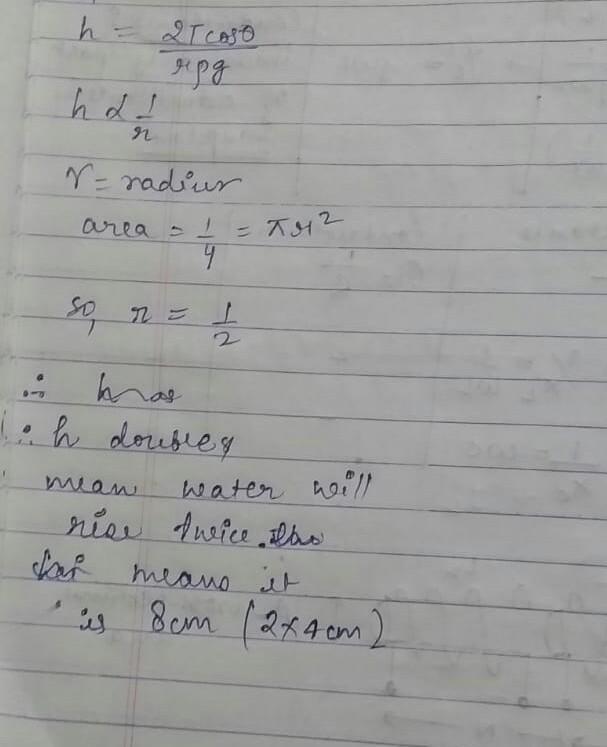 h = 2Tcosθ / rρg
h α 1/r
r = radius
area = 1/4 = πr²
so, r = 1/2
∴ h
∴ h doubles
mean water will
rise twice.
that means it
is 8cm (2×4cm)